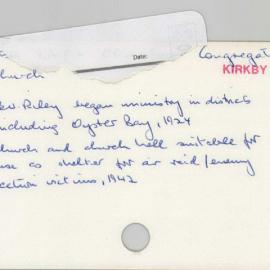 Date:
Congregat
KIRKBY
church
ev. Riley began ministry in districts
ncluding Oyster Bay, 1924
hurch and church hall suitable for
use as shelter for air raid/enemy
action victims, 1942